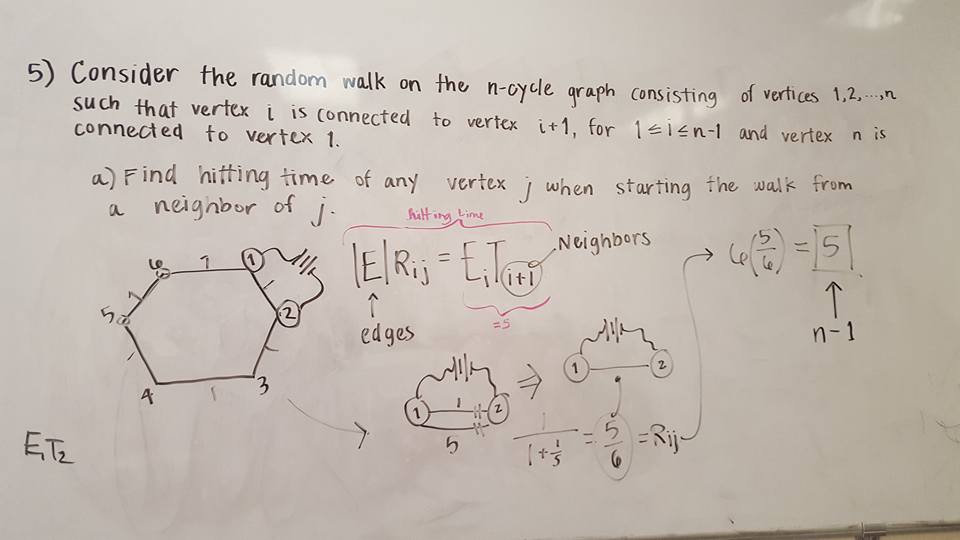 5) Consider the random walk on the n-cycle graph consisting of vertices 1,2,...,n
such that vertex i is connected to vertex i+1, for 1≤i≤n-1 and vertex n is
connected to vertex 1.
a) Find hitting time of any vertex j when starting the walk from
a neighbor of j.
hitting time
|E|Rij = EiT(i+1)
Neighbors
edges
=5
6(5/6) = 5
n-1
6 1 1
1 1
5 2
1 1
4 1 3
1 1 2
5
⇒
1 2
1/(1+1/5) = 5/6 = Rij
E1T2